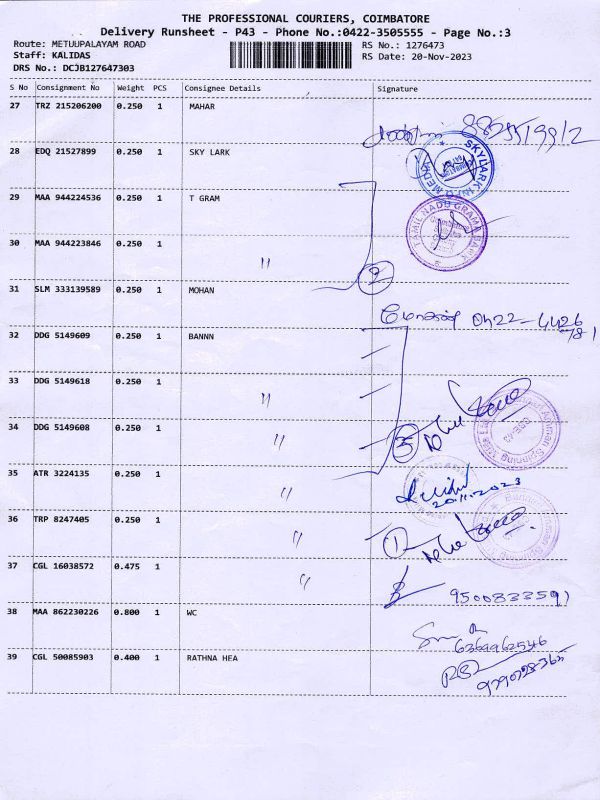 THE PROFESSIONAL COURIERS, COIMBATORE
Delivery Runsheet - P43 - Phone No.:0422-3505555 - Page No.:3
Route: METUUPALAYAM ROAD
RS No.: 1276473
Staff: KALIDAS
RS Date: 20-Nov-2023
DRS No.: DCJB127647303
S No Consignment No Weight PCS Consignee Details Signature
27 TRZ 215206200 0.250 1 MAHAR
28 EDQ 21527899 0.250 1 SKY LARK
29 MAA 944224536 0.250 1 T GRAM
TAMIL NADU GRAMA BANK
30 MAA 944223846 0.250 1 "
2
31 SLM 333139589 0.250 1 MOHAN
0422-4426
32 DDG 5149609 0.250 1 BANNN
33 DDG 5149618 0.250 1 "
34 DDG 5149608 0.250 1 "
3
35 ATR 3224135 0.250 1 "
20.11.2023
36 TRP 8247405 0.250 1 "
1
37 CGL 16038572 0.475 1 "
9500833591
38 MAA 862230226 0.800 1 WC
6369962546
39 CGL 50085903 0.400 1 RATHNA HEA